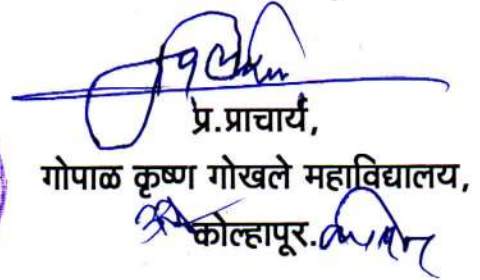 प्र.प्राचार्य,
गोपाळ कृष्ण गोखले महाविद्यालय,
कोल्हापूर.